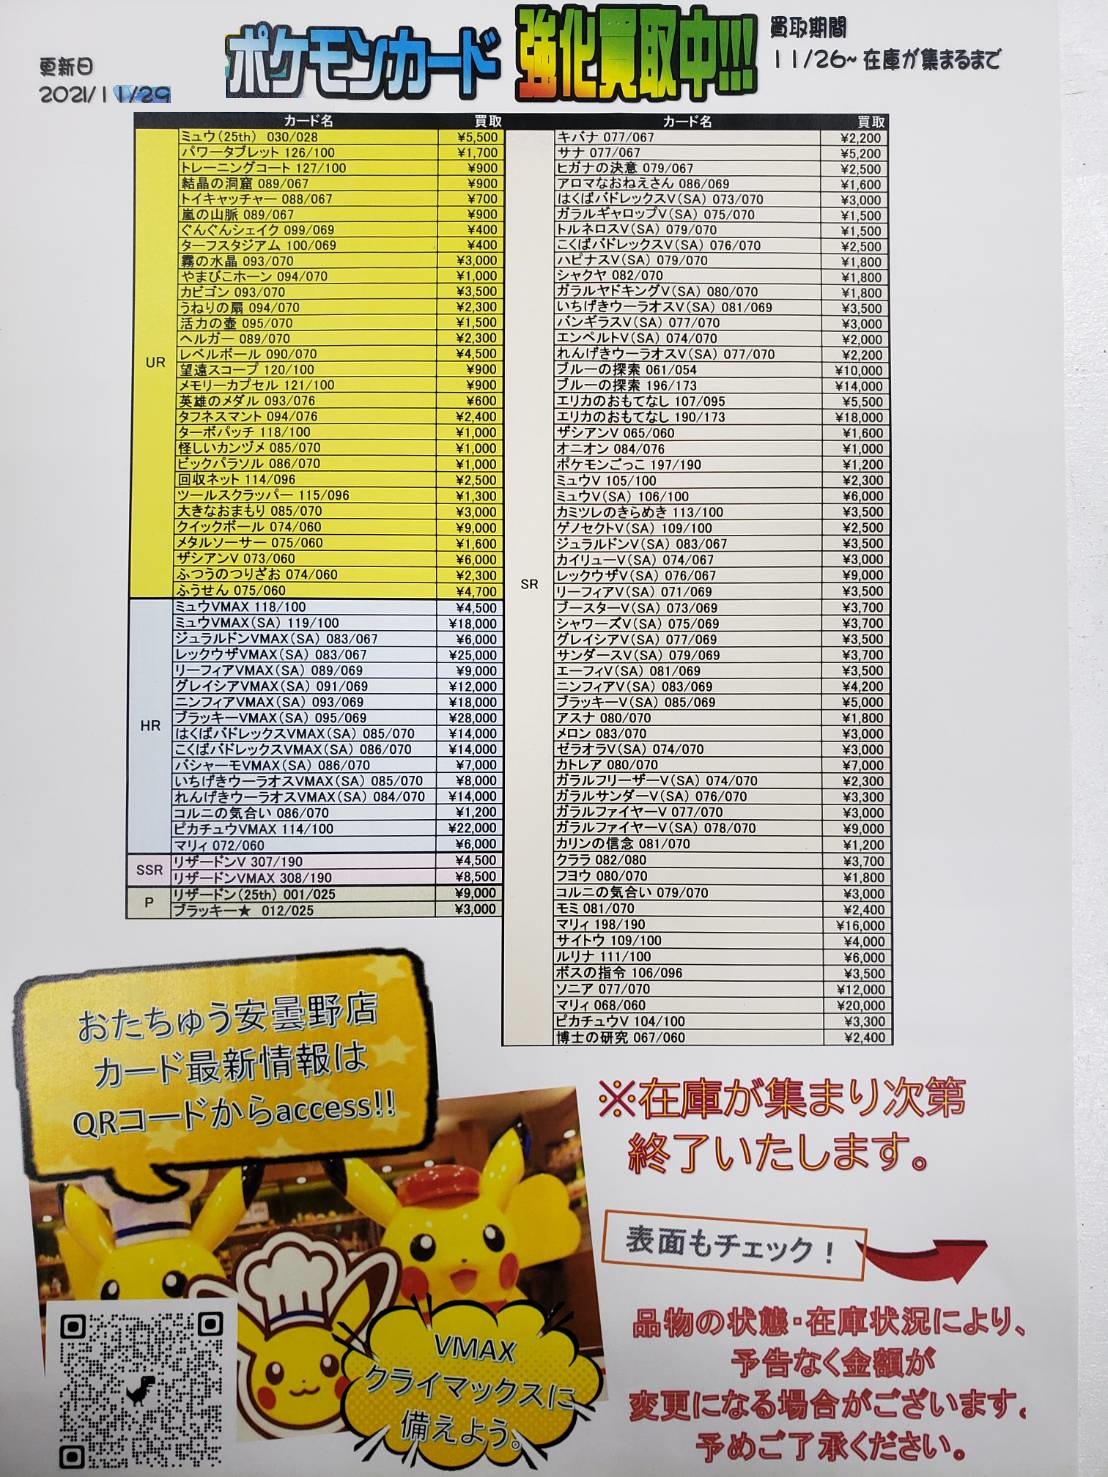 更新日
2021/11/29
ポケモンカード 強化買取中!!!
買取期間
11/26~在庫が集まるまで
カード名 買取
UR
ミュウ(25th) 030/028 ¥5,500
パワータブレット 126/100 ¥1,700
トレーニングコート 127/100 ¥900
結晶の洞窟 089/067 ¥900
トイキャッチャー 088/067 ¥700
嵐の山脈 089/067 ¥900
ぐんぐんシェイク 099/069 ¥400
ターフスタジアム 100/069 ¥400
霧の水晶 093/070 ¥3,000
やまびこホーン 094/070 ¥1,000
カビゴン 093/070 ¥3,500
うねりの扇 094/070 ¥2,300
活力の壺 095/070 ¥1,500
ヘルガー 089/070 ¥2,300
レベルボール 090/070 ¥4,500
望遠スコープ 120/100 ¥900
メモリーカプセル 121/100 ¥900
英雄のメダル 093/076 ¥600
タフネスマント 094/076 ¥2,400
ターボパッチ 118/100 ¥1,000
怪しいカンヅメ 085/070 ¥1,000
ビックパラソル 086/070 ¥1,000
回収ネット 114/096 ¥2,500
ツールスクラッパー 115/096 ¥1,300
大きなおまもり 085/070 ¥3,000
クイックボール 074/060 ¥9,000
メタルソーサー 075/060 ¥1,600
ザシアンV 073/060 ¥6,000
ふつうのつりざお 074/060 ¥2,300
ふうせん 075/060 ¥4,700
HR
ミュウVMAX 118/100 ¥4,500
ミュウVMAX(SA) 119/100 ¥18,000
ジュラルドンVMAX(SA) 083/067 ¥6,000
レックウザVMAX(SA) 083/067 ¥25,000
リーフィアVMAX(SA) 089/069 ¥9,000
グレイシアVMAX(SA) 091/069 ¥12,000
ニンフィアVMAX(SA) 093/069 ¥18,000
ブラッキーVMAX(SA) 095/069 ¥28,000
はくばバドレックスVMAX(SA) 085/070 ¥14,000
こくばバドレックスVMAX(SA) 086/070 ¥14,000
バシャーモVMAX(SA) 086/070 ¥7,000
いちげきウーラオスVMAX(SA) 085/070 ¥8,000
れんげきウーラオスVMAX(SA) 084/070 ¥14,000
コルニの気合い 086/070 ¥1,200
ピカチュウVMAX 114/100 ¥22,000
マリィ 072/060 ¥6,000
SSR
リザードンV 307/190 ¥4,500
リザードンVMAX 308/190 ¥8,500
P
リザードン(25th) 001/025 ¥9,000
ブラッキー★ 012/025 ¥3,000
カード名 買取
SR
キバナ 077/067 ¥2,200
サナ 077/067 ¥5,200
ヒガナの決意 079/067 ¥2,500
アロマなおねえさん 086/069 ¥1,600
はくばバドレックスV(SA) 073/070 ¥3,000
ガラルギャロップV(SA) 075/070 ¥1,500
トルネロスV(SA) 079/070 ¥1,500
こくばバドレックスV(SA) 076/070 ¥2,500
ハピナスV(SA) 079/070 ¥1,800
シャクヤ 082/070 ¥1,800
ガラルヤドキングV(SA) 080/070 ¥1,800
いちげきウーラオスV(SA) 081/069 ¥3,500
バンギラスV(SA) 077/070 ¥3,000
エンペルトV(SA) 074/070 ¥2,000
れんげきウーラオスV(SA) 077/070 ¥2,200
ブルーの探索 061/054 ¥10,000
ブルーの探索 196/173 ¥14,000
エリカのおもてなし 107/095 ¥5,500
エリカのおもてなし 190/173 ¥18,000
ザシアンV 065/060 ¥1,600
オニオン 084/076 ¥1,000
ポケモンごっこ 197/190 ¥1,200
ミュウV 105/100 ¥2,300
ミュウV(SA) 106/100 ¥6,000
カミツレのきらめき 113/100 ¥3,500
ゲノセクトV(SA) 109/100 ¥2,500
ジュラルドンV(SA) 083/067 ¥3,500
カイリューV(SA) 074/067 ¥3,000
レックウザV(SA) 076/067 ¥9,000
リーフィアV(SA) 071/069 ¥3,500
ブースターV(SA) 073/069 ¥3,700
シャワーズV(SA) 075/069 ¥3,700
グレイシアV(SA) 077/069 ¥3,500
サンダースV(SA) 079/069 ¥3,700
エーフィV(SA) 081/069 ¥3,500
ニンフィアV(SA) 083/069 ¥4,200
ブラッキーV(SA) 085/069 ¥5,000
アスナ 080/070 ¥1,800
メロン 083/070 ¥3,000
ゼラオラV(SA) 074/070 ¥3,000
カトレア 080/070 ¥7,000
ガラルフリーザーV(SA) 074/070 ¥2,300
ガラルサンダーV(SA) 076/070 ¥3,300
ガラルファイヤーV 077/070 ¥3,000
ガラルファイヤーV(SA) 078/070 ¥9,000
カリンの信念 081/070 ¥1,200
クララ 082/080 ¥3,700
フヨウ 080/070 ¥1,800
コルニの気合い 079/070 ¥3,000
モミ 081/070 ¥2,400
マリィ 198/190 ¥16,000
サイトウ 109/100 ¥4,000
ルリナ 111/100 ¥6,000
ボスの指令 106/096 ¥3,500
ソニア 077/070 ¥12,000
マリィ 068/060 ¥20,000
ピカチュウV 104/100 ¥3,300
博士の研究 067/060 ¥2,400
おたちゅう安曇野店
カード最新情報は
QRコードからaccess!!
VMAX
クライマックスに
備えよう。
※在庫が集まり次第
終了いたします。
表面もチェック!
品物の状態・在庫状況により、
予告なく金額が
変更になる場合がございます。
予めご了承ください。